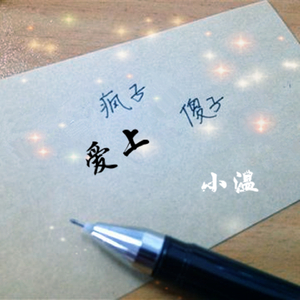 疯子
傻子
爱上
小温